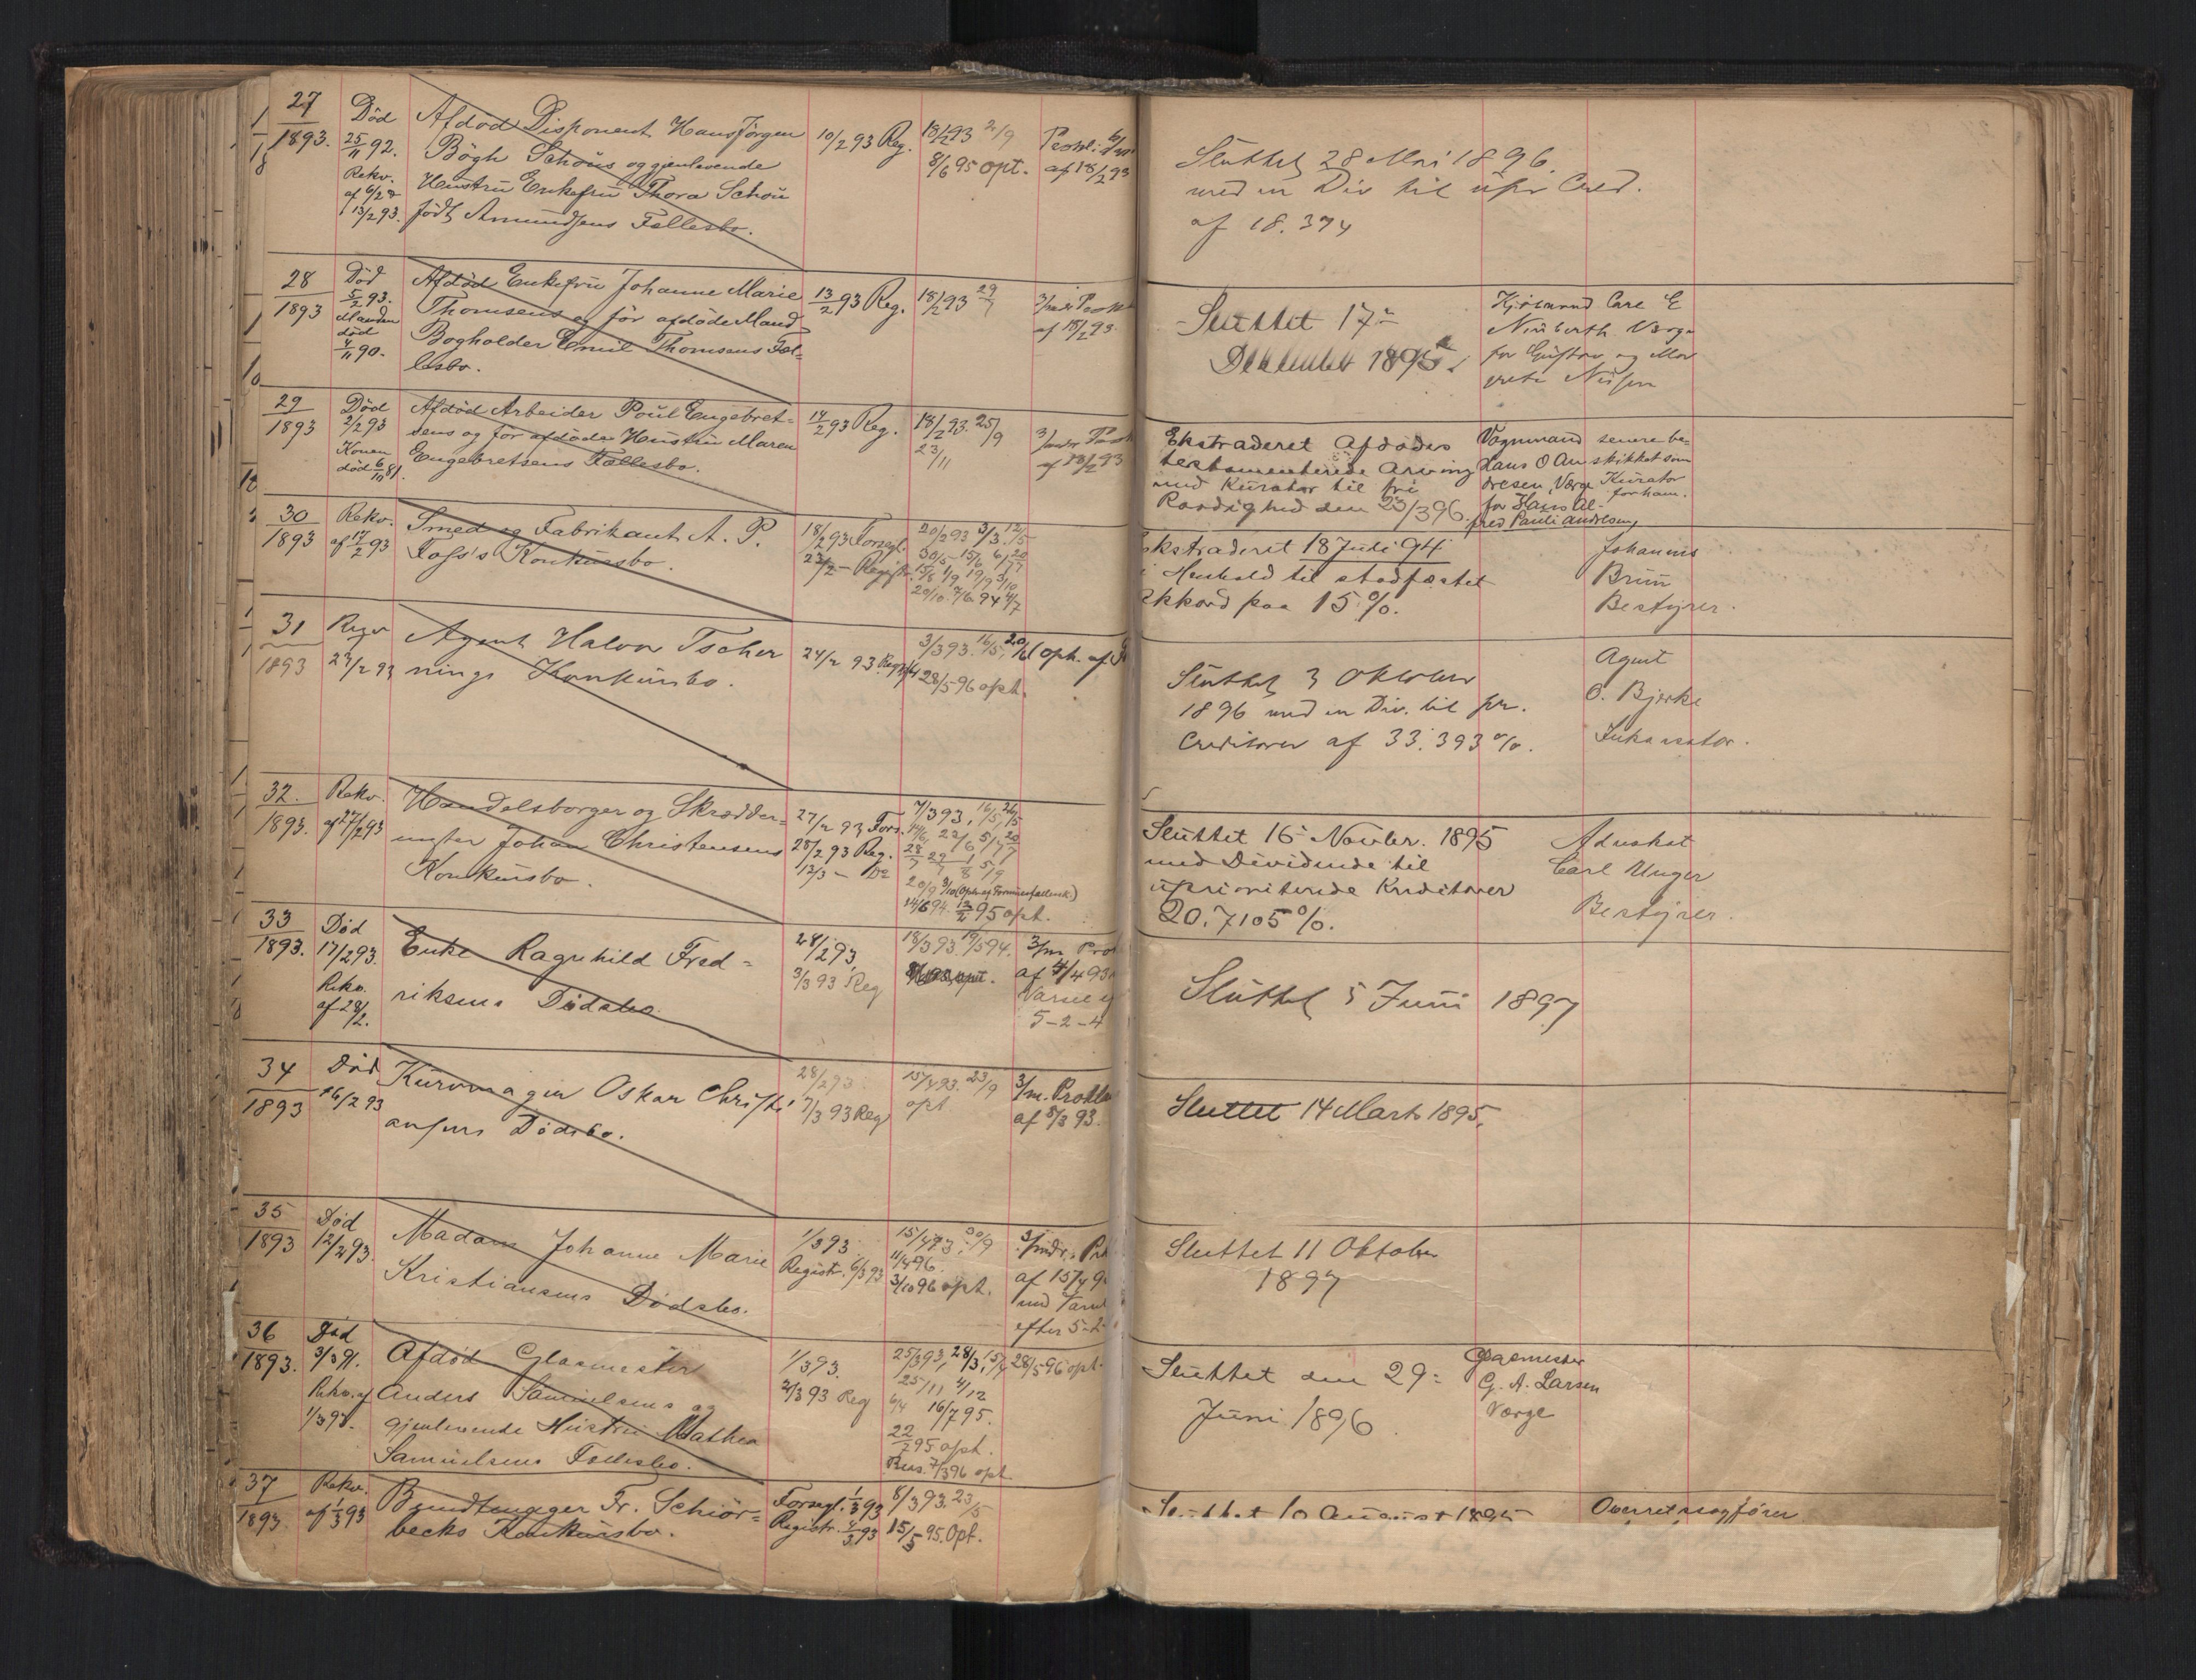 27
1893.
Död
25/11 92.
Rekv.
af 6/2 &
13/2 93.
Afdöd Disponent Hans Jörgen
Bögh Schous og gjenlevende
Hustru Enkefru Thora Schou
födt Amundsens Fællesbo.
10/2 93 Reg.
18/2 93 2/9
8/6 95 opt.
af 18/2 93
Sluttet 28 Mai 1896
med en Div til upr Cred.
af 18.374
28
1893
Död
5/2 93.
Manden
död
4/11 90.
Afdöd Enkefru Johanne Marie
Thomsens og för afdöde Mand
Bogholder Emil Thomsens Fæl-
lesbo.
13/2 93 Reg.
18/2 93 29/7
af 18/2 93
Sluttet 17-
December 1895.
Kjöbmand Carl E
Værge
for Gustav og Mar
grete
29
1893
Död
2/2 93
Konen
död 6/10 81.
Afdöd Arbeider Poul Engebret-
sens og för afdöde Hustru Maren
Engebretsens Fællesbo.
14/2 93 Reg.
18/2 93. 25/9
23/11
af 18/2 93
Ekstraderet Afdödes
testamenterede Arving
med Kurator til fri
Raadighed den 25/3 96.
Vognmand
Hans O An
dresen, Værge
for Hans Al-
fred Pauli Andresen
senere be-
skikket som
Kurator
for ham.
30
1893
Rekv.
af 17/2 93
Smed og Fabrikant A. P.
Foss's Konkursbo.
18/2 93 Forsegl.
23/2 - Registr.
20/2 93 3/3. 12/5
30/5 15/6 6/7 20/7
15/8 1/9 19/9 3/10
20/10. 7/6 94 4/7
Ekstraderet 18 Juli 94
i Henhold til stadfæstet
Akkord paa 15 %.
Johannes
Brun
Bestyrer.
31
1893
23/2 93
Agent Halvor Tscher
nings Konkursbo.
24/2 93 Reg
3/3 93. 16/5, 20/6
28/5 96 opt.
Sluttet 3 Oktober
1896 med en Div. til pr.
Creditorer af 33.393 %.
Agent
O. Bjerke
Inkassator.
32.
1893.
Rekv.
af 27/2 93
Handelsborger og Skrædder-
mester Johan Christensens
Konkursbo.
27/2 93 Fors.
28/2 93 Reg.
13/3 - Do
7/3 93, 16/5, 26/5
14/6 94. 13/2 95 opt.
Sluttet 16- Novbr. 1895
med Dividende til
upriorit­erede Kreditorer
20.7105 %.
Advokat
Carl Unger
Bestyrer.
33
1893.
Död
17/2 93.
Rekv.
af 28/2.
Enke Ragnhild Fred-
riksens Dödsbo
28/2 93
3/3 93 Reg
18/3 93 19/5 94.
3/m Pro
af 4/4 93
Varsel
5-2-4
Sluttet 5 Juni 1897
34
1893
Död
16/2 93
Kurvmager Oskar Christi
ansens Dödsbo.
28/2 93
7/3 93 Reg
15/4 93. 23/9
opt
3/m. Prokla
af 8/3 93.
Sluttet 14 Marts 1895.
35
1893
Död
12/2 93.
Madam Johanne Marie
Kristiansens Dödsbo.
1/3 93
Registr. 6/3 93
15/4 93, 30/9
11/4 96.
3/10 96 opt.
3/mdr. Pro
af 15/4 9
med Varsel
efter 5-2-
Sluttet 11 Oktober
1897
36
1893.
Död
3/3 91.
Rekv. af
1/3 93.
Afdöd Glasmester
Anders Samuelsens og
gjenlevende Hustru Mathea
Samuelsens Fællesbo.
1/3 93.
2/3 93 Reg
25/3 93, 28/3, 15/4
25/11 4/12
6/4 16/7 95.
22/2 95 opt.
7/3 96 opt
28/5 96 opt.
Sluttet den 29-
Juni 1896
Glasmester
G. A. Larsen
Værge
37
1893
Rekv.
af 1/3 93
Brændtmager Fr. Schiör-
becks Konkursbo.
Forsegl. 1/3 93
Registr. 4/3 93
8/3 93. 23/5
15/5 95. Opt.
Sluttet 10 August 1895
Overretssagförer